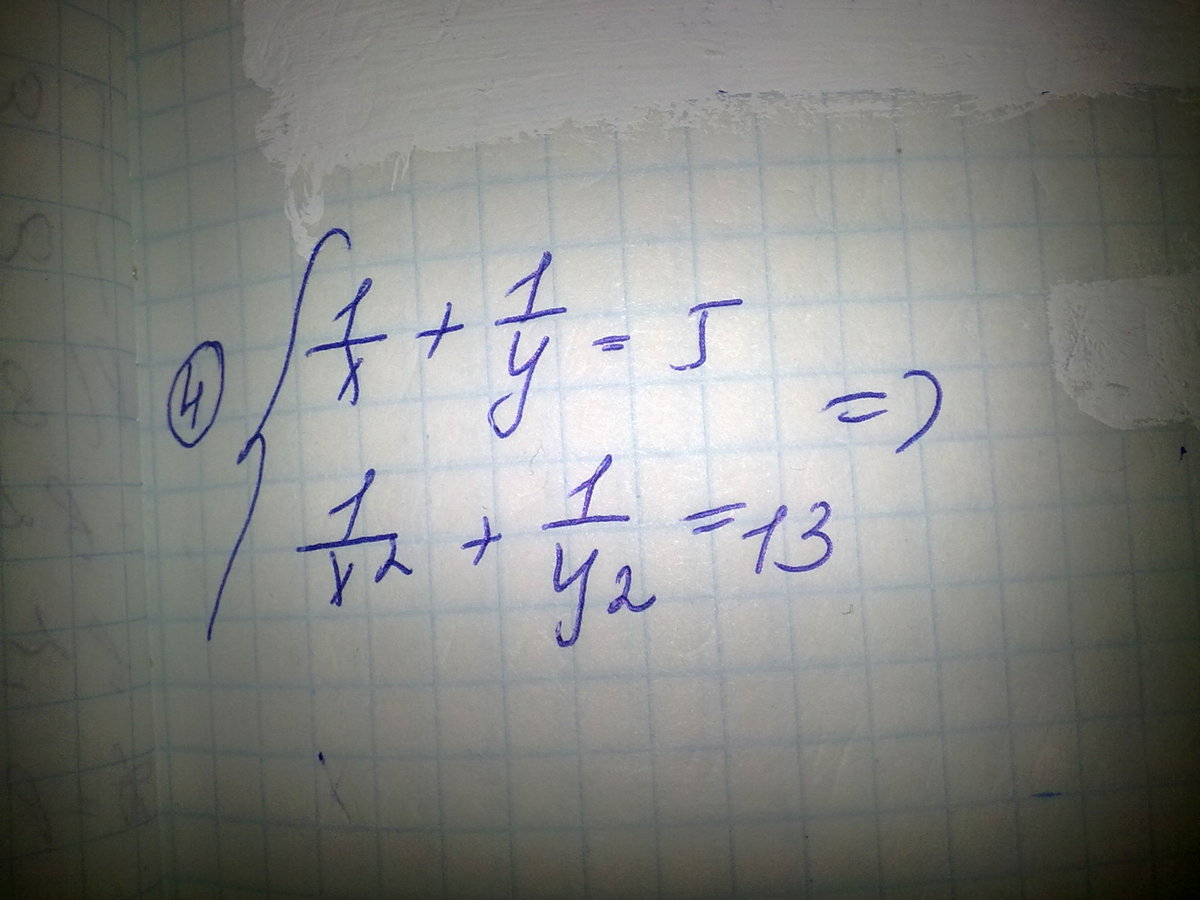 ④ { 1/x + 1/y = 5
1/x² + 1/y² = 13 =>